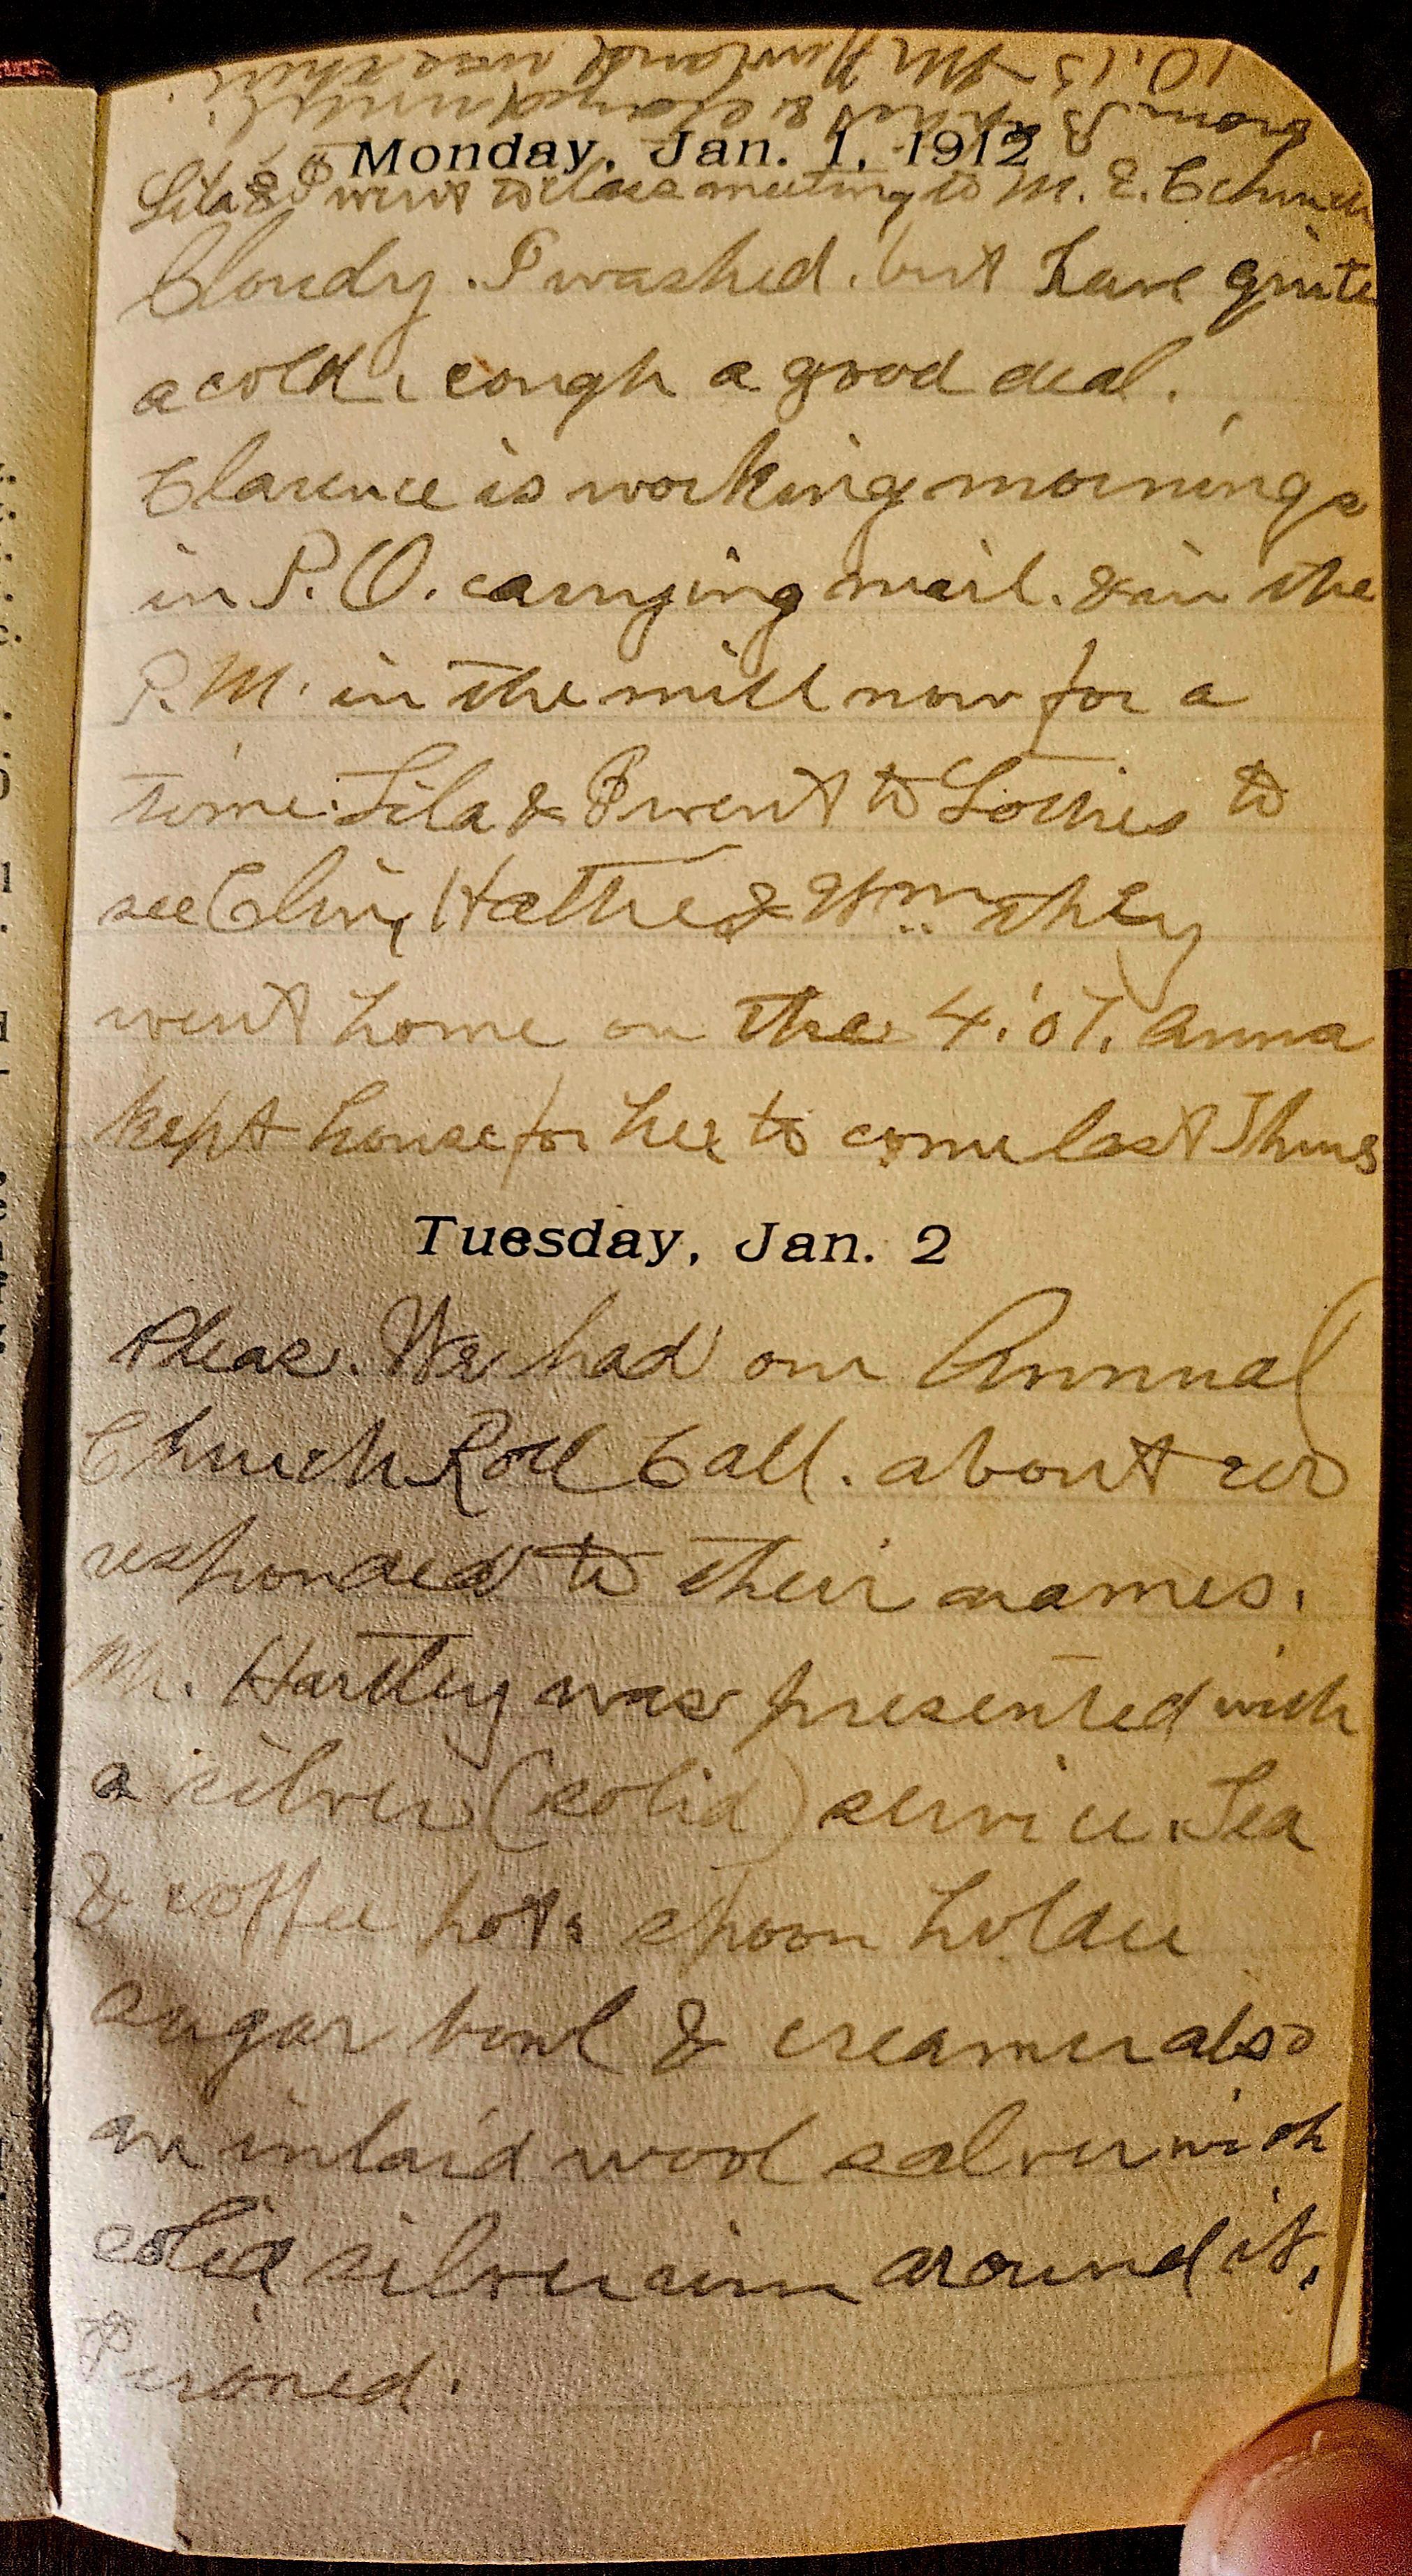 10.15 Mr was there.
from & stayed until
Monday, Jan. 1, 1912
Lila & I went to class meeting to M. E. Church
Cloudy. I washed. but have quite
a cold, cough a good deal.
Clarence is working mornings
in P. O. carrying mail. & in the
P. M. in the mill now for a
time. Lila & I went to Lotties to
see Clin, Hattie & Wm. they
went home on the 4:07. Anna
kept house for her to come last Thurs
Tuesday, Jan. 2
Pleas. We had our Annual
Church Roll Call. about
responded to their names.
Mr. Hartley was presented with
a silver (solid) service. Tea
& coffee pots spoon holder
sugar bowl & creamer also
an inlaid wood salver with
solid silver rim around it.
I ironed.